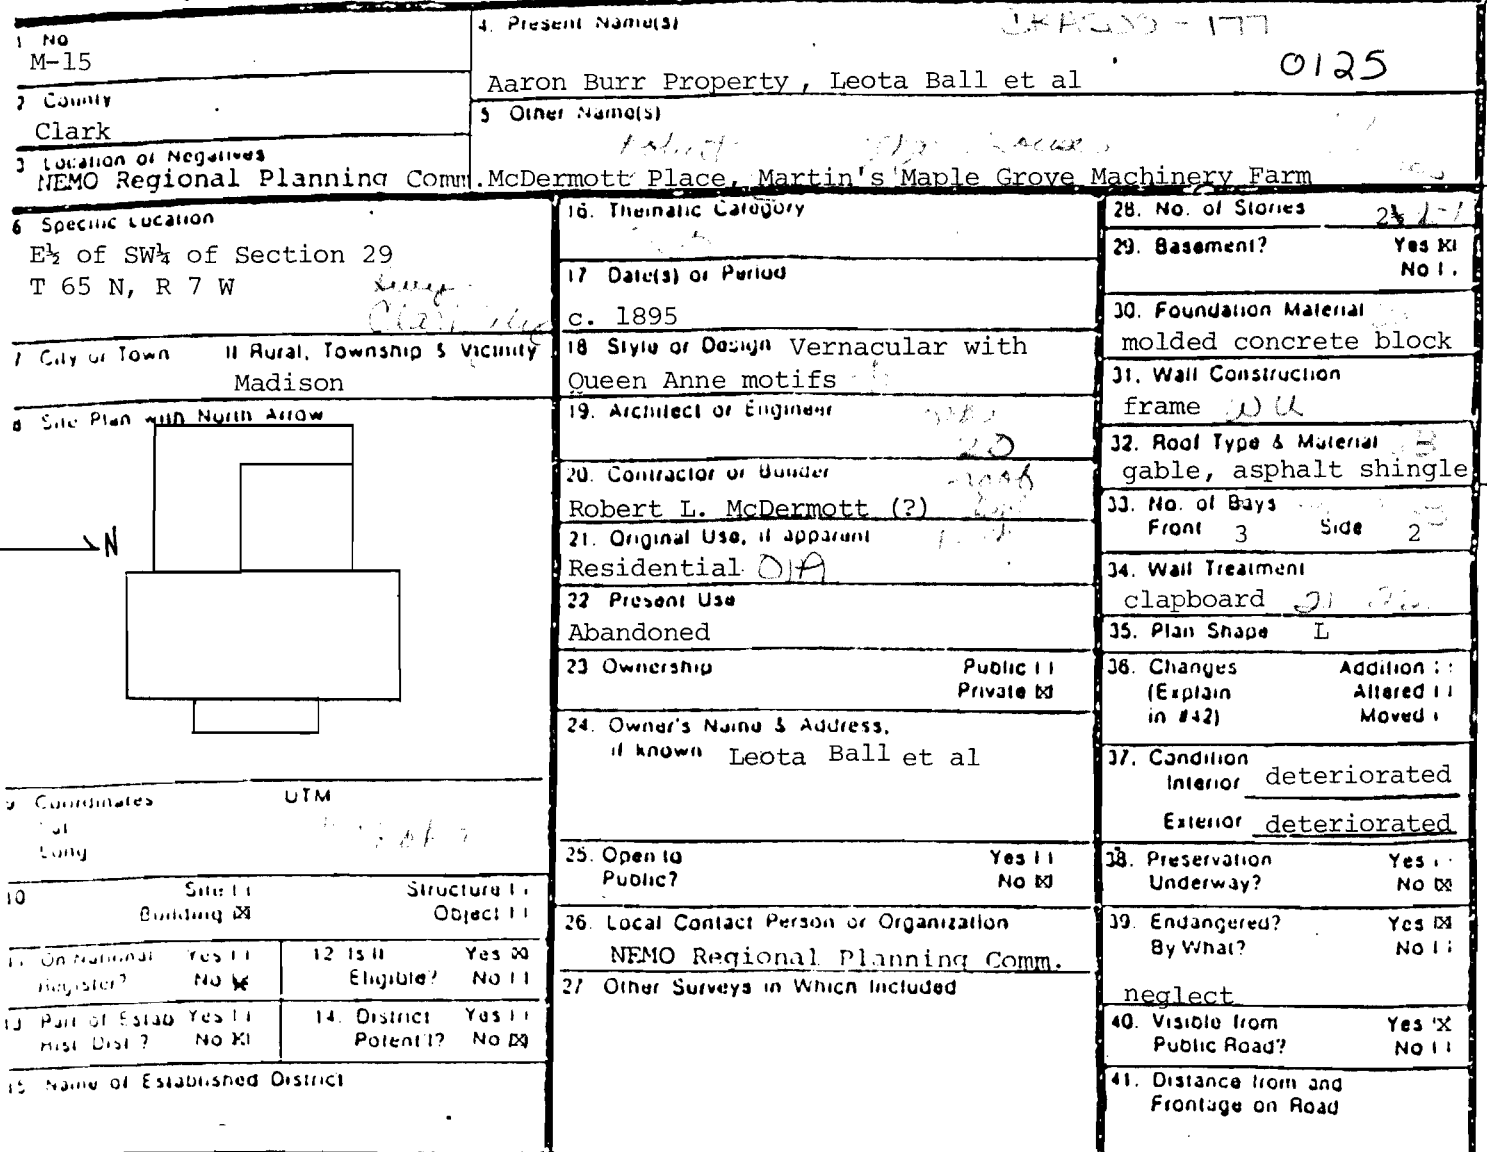 1 No
M-15
2 County
Clark
3 Location of Negatives
NEMO Regional Planning Comm.
4. Present Name(s)
0125
Aaron Burr Property, Leota Ball et al
5 Other Name(s)
McDermott Place, Martin's Maple Grove Machinery Farm
6 Specific Location
E½ of SW¼ of Section 29
T 65 N, R 7 W
7 City or Town If Rural, Township & Vicinity
Madison
8 Site Plan with North Arrow
N
9 Coordinates UTM
Lat
Long
10 Site
Structure
Building ☒
Object
11 On National Register? Yes No ☒
12 Is It Eligible? Yes ☒ No
13 Part of Estab Hist Dist? Yes No ☒
14. District Potent'l? Yes No ☒
15 Name of Established District
16. Thematic Category
17 Date(s) or Period
c. 1895
18 Style or Design Vernacular with
Queen Anne motifs
19. Architect or Engineer
20
20. Contractor or Builder
Robert L. McDermott (?)
21. Original Use, if apparent
Residential 01A
22 Present Use
Abandoned
23 Ownership Public
Private ☒
24. Owner's Name & Address,
if known Leota Ball et al
25. Open to Public? Yes
No ☒
26. Local Contact Person or Organization
NEMO Regional Planning Comm.
27 Other Surveys in Which Included
28. No. of Stories
29. Basement? Yes ☒
No
30. Foundation Material
molded concrete block
31. Wall Construction
frame
32. Roof Type & Material
gable, asphalt shingle
33. No. of Bays
Front 3 Side 2
34. Wall Treatment
clapboard
35. Plan Shape L
36. Changes Addition
(Explain Altered
in #42) Moved
37. Condition
Interior deteriorated
Exterior deteriorated
38. Preservation Yes
Underway? No ☒
39. Endangered? Yes ☒
By What? No
neglect
40. Visible from Yes X
Public Road? No
41. Distance from and
Frontage on Road